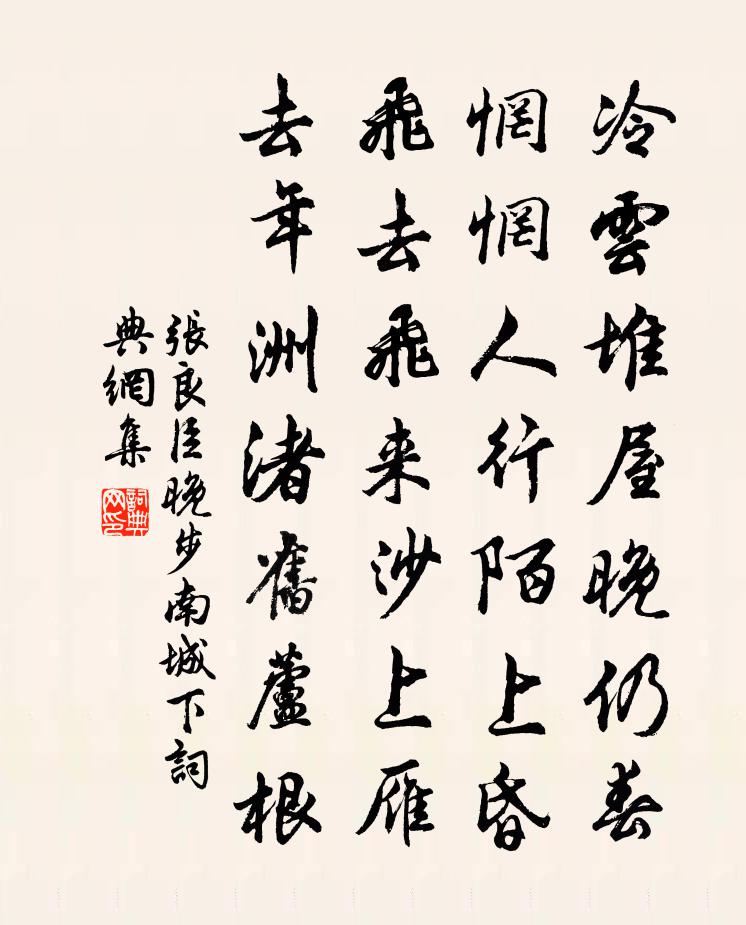 冷雲堆屋晚仍奔
惘惘人行陌上昏
飛去飛来沙上雁
去年洲渚舊蘆根
張良臣晚步南城下詞
典網集
詞典
网印